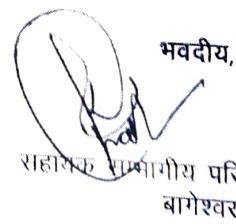 भवदीय,
सहायक सम्भागीय परि
बागेश्वर